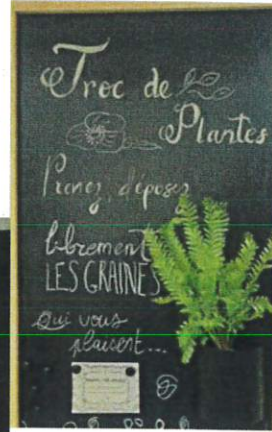 Troc de
Plantes
Prenez, déposez
librement
LES GRAINES
Qui vous
plaisent...